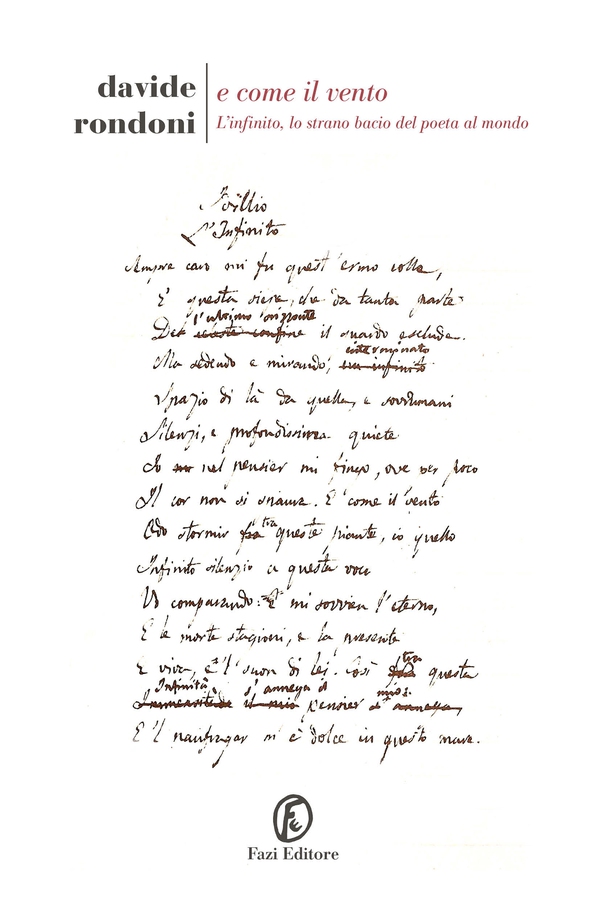 davide
rondoni
e come il vento
L'infinito, lo strano bacio del poeta al mondo
Idillio
L'Infinito
Sempre caro mi fu quest'ermo colle,
E questa siepe, che da tanta parte
l'ultimo orizzonte
Del celeste confine il guardo esclude.
interminato
Ma sedendo e mirando, un infinito
Spazio di là da quella, e sovrumani
Silenzi, e profondissima quiete
Io nel pensier mi fingo, ove per poco
Il cor non si spaura. E come il vento
tra
Odo stormir fra queste piante, io quello
Infinito silenzio a questa voce
Vo comparando: E mi sovvien l'eterno,
E le morte stagioni, e la presente
E viva, e 'l suon di lei. Così fra questa
tra
Infinità s'annega il mio
Immensitade il mio pensier s'annega,
E 'l naufragar m'è dolce in questo mare.
Fe
Fazi Editore